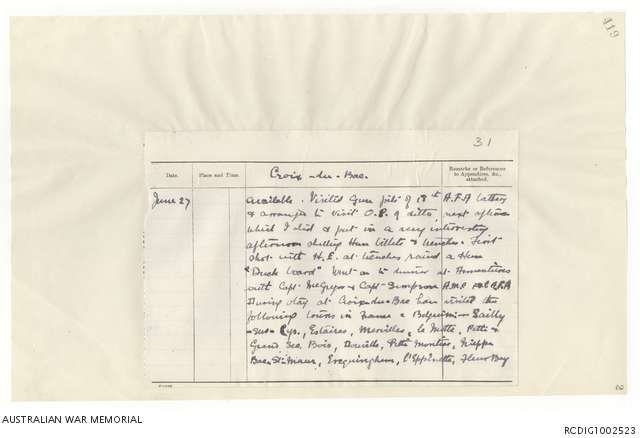 419
31
Date.
Place and Time.
Croix-du-Bac.
Remarks or References to Appendices, &c., attached.
June 27
available. Visited Gun pits of 18th A.F.A battery
& arranged to visit O.P. of ditto, next afternoon
which I did & put in a very interesting
afternoon shelling Hun billets & trenches. First
shot with H.E. at trenches raised a Hun
"Duck board" Went on to dinner at Armentieres
with Capt. McGregor & Capt. Simpson A.M.C.
During stay at Croix-du-Bac have visited the
following towns in France & Belguim:- Sailly
-sur-Lys, Estaires, Merville, la Motte, Petit &
Grand Sec Bois, Petit Mortier, Nieppe
Bac-St-Maur, Erquinghem, l'Eppinette, Fleur Baix
AUSTRALIAN WAR MEMORIAL
RCDIG1002523